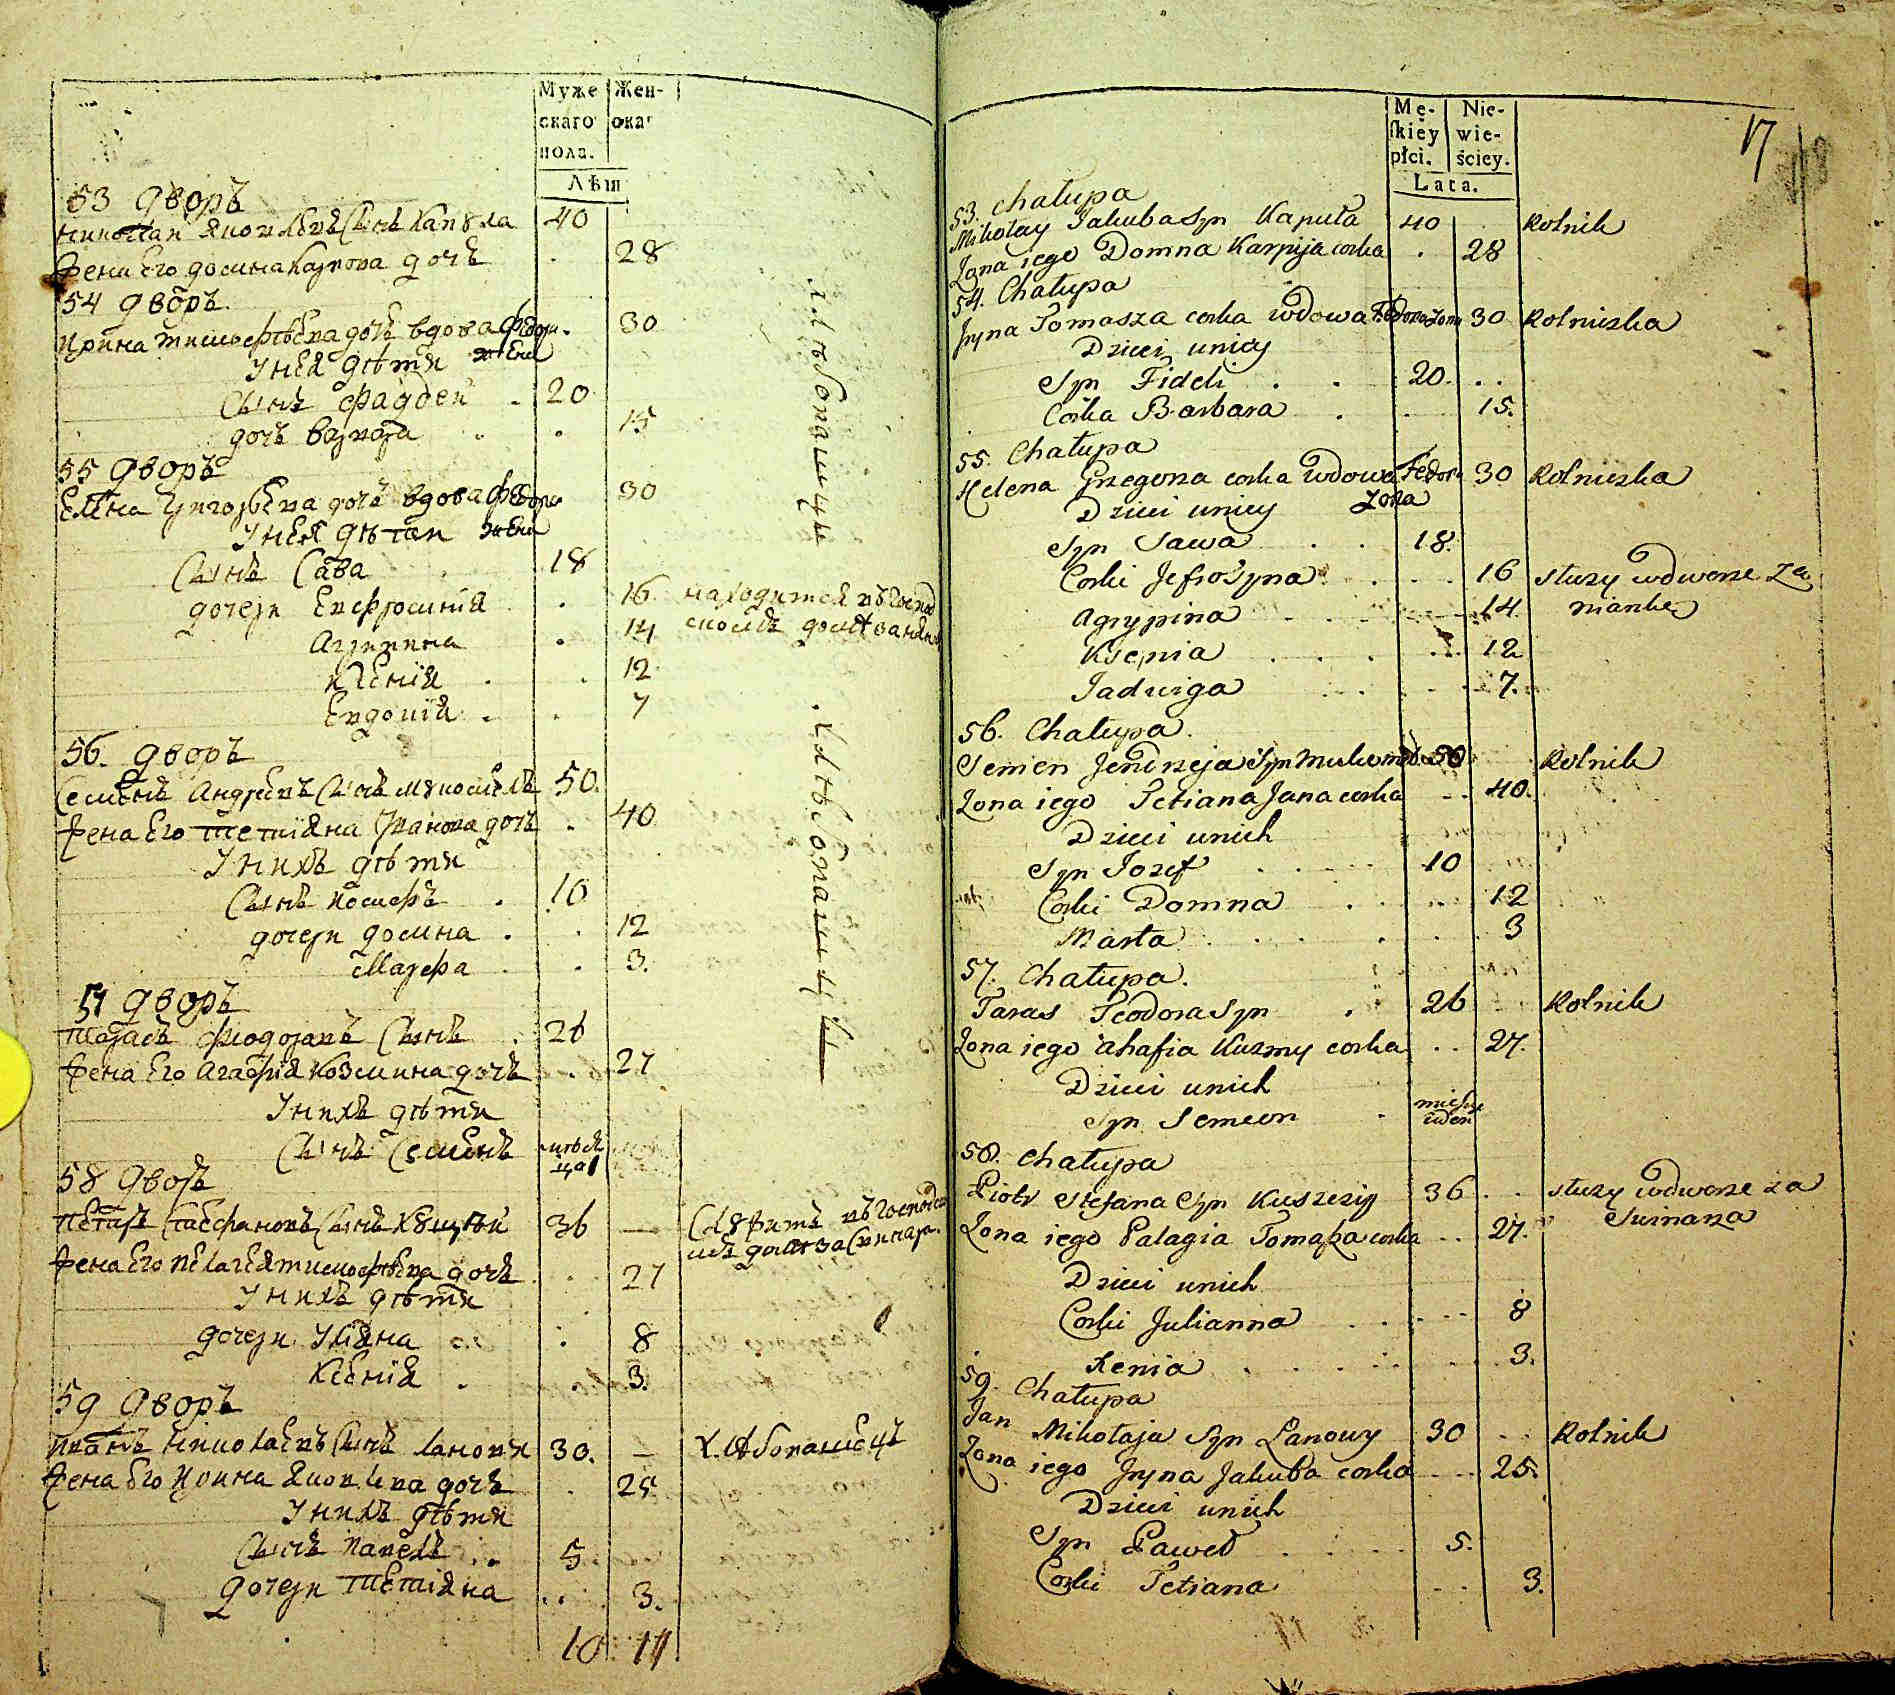 Муже
скаго
пола.
Жен-
ска
Лѣта
53 дворъ
Николай Яковлевъ сынъ Капула 40
жена его домна Карпова дочь 28
54 дворъ
Ирина тимофѣева дочь вдова федора 30
жена
У нея дѣти
сынъ Фадѣей 20
дочь варвара 15
55 дворъ
Елена григорьева дочь вдова федора 30
У нея дѣти жена
сынъ Сава 18
дочери Евфросинія 16 находится въ господ
Агрипина 14
Ксенія 12
Евдокія 7
хлѣбопашцы
56. дворъ
Семенъ Андреевъ сынъ 50.
жена его тетіяна Иванова дочь 40
У нихъ дѣти
сынъ иосифъ 10
дочери домна 12
Марфа 3.
57 дворъ
тарасъ Фиодоровъ сынъ 26
жена его агафія козмина дочь 27
У нихъ дѣти
сынъ Семенъ мѣся
ца 1
хлѣбопашцы
58 дворъ
Петръ Стефановъ сынъ Кущѣй 36 — служитъ въ господ
жена его пелагея тимофѣева дочь 27
У нихъ дѣти
дочери Уліяна 8
Ксенія 3.
59 дворъ
иванъ николаевъ сынъ лановы 30. — хлѣбопашецъ
жена его ирина яковлева дочь 25
У нихъ дѣти
сынъ павелъ 5
дочери тетіяна 3.
10 11
Mę-
ſkiey
płci.
Nie-
wie-
ściey.
Lata.
17
53. Chałupa
Mikołay Jakuba Syn Kapuła 40 Rolnik
Zona iego Domna Karpija corka 28
54. Chałupa
Jryna Tomasza corka wdowa Fedora Zona 30 Rolniczka
Dzieci u niey
Syn Fideli 20.
Corka Barbara 15.
55. Chałupa
Helena Grzegorza corka wdowa Fedora 30 Rolniczka
Dzieci u niey Zona
Syn Sawa 18.
Corki Jefrosyna 16 służy w dworze za
Agrypina 14 niankę
Ksenia 12
Jadwiga 7.
56. Chałupa.
Semen Jendrzeja Syn 50 Rolnik
Zona iego Tetiana Jana corka 40.
Dzieci u nich
Syn Jozef 10
Corki Domna 12
Marta 3
57. Chałupa.
Taras Teodora Syn 26 Rolnik
Zona iego ahafia Kuzmy corka 27.
Dzieci u nich
Syn Semeon
58. Chałupa
Piotr Stefana Syn Kuszczij 36 służy w dworze za
Swinarza
Zona iego Palagia Tomasza corka 27.
Dzieci u nich
Corki Julianna 8
Xenia 3.
59. Chałupa
Jan Mikołaja Syn Łanowy 30 Rolnik
Zona iego Jryna Jakuba corka 25.
Dzieci u nich
Syn Paweł 5.
Corki Tetiana 3.